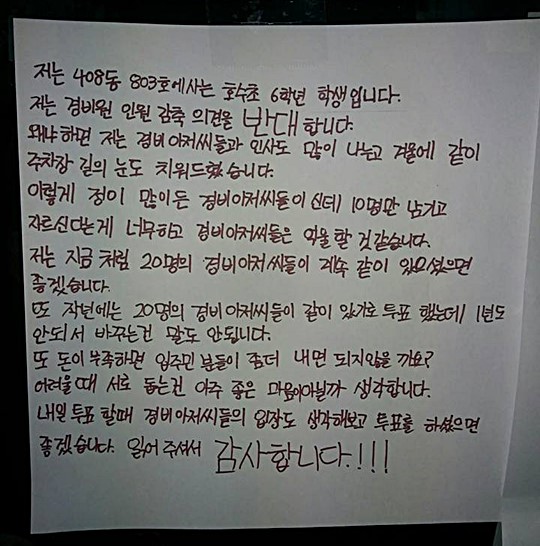 저는 408동 803호에사는 호수초 6학년 학생입니다.
저는 경비원 인원 감축 의견을 반대합니다.
왜냐하면 저는 경비아저씨들과 인사도 많이 나누고 겨울에 같이
주차장 길의 눈도 치워드렸습니다.
이렇게 정이 많이든 경비아저씨들이신데 10명만 남기고
자르신다는게 너무하고 경비아저씨들은 억울할 것같습니다.
저는 지금 처럼 20명의 경비아저씨들이 계속 같이 있으셨으면
좋겠습니다.
또 작년에는 20명의 경비아저씨들이 같이 있기로 투표 했는데 1년도
안되서 바꾸는건 말도 안됩니다.
또 돈이 부족하면 입주민 분들이 좀더 내면 되지않을까요?
어려울때 서로 돕는건 아주 좋은 마음이아닐까 생각합니다.
내일 투표 할때 경비아저씨들의 입장도 생각해보고 투표를 하셨으면
좋겠습니다. 읽어 주셔서 감사합니다.!!!